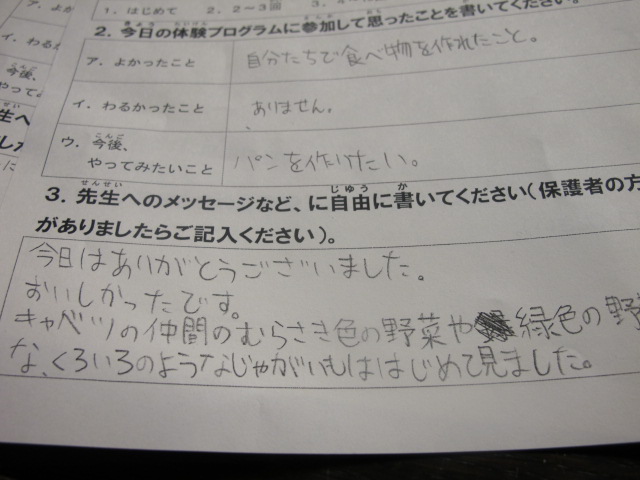 1. はじめて 2. 2~3回 3.
2. 今日の体験プログラムに参加して思ったことを書いてください。
ア. よかったこと 自分たちで食べ物を作れたこと。
イ. わるかったこと ありません。
ウ. 今後、
やってみたいこと パンを作りたい。
3. 先生へのメッセージなど、に自由に書いてください(保護者の方
がありましたらご記入ください)。
今日はありがとうございました。
おいしかったです。
キャベツの仲間のむらさき色の野菜や緑色の野
な、くろいろのようなじゃがいもははじめて見ました。